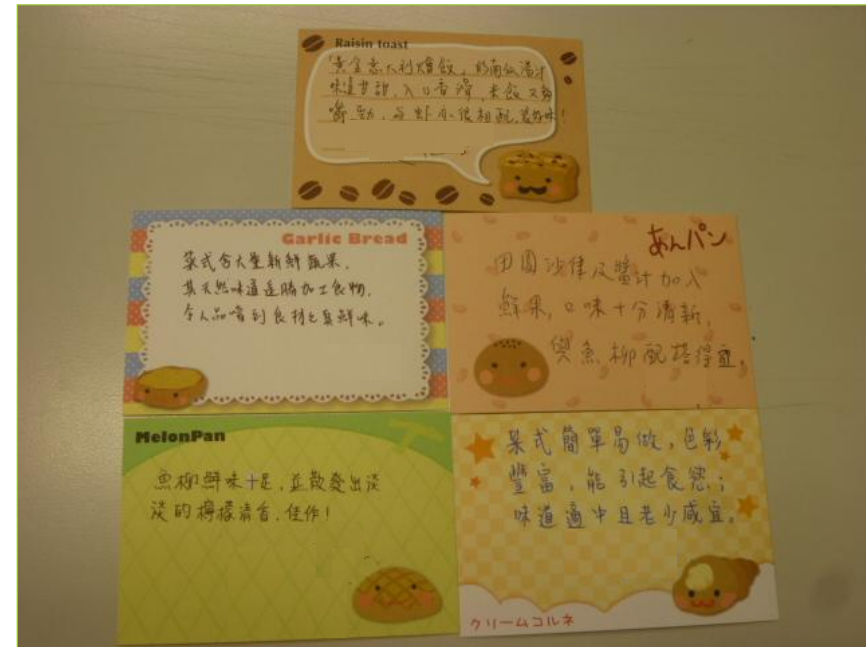 Raisin toast
「黃金意大利燴飯」的南瓜湯汁
味道甘甜,入口香滑,米飯又夠
嚼勁,與虾亦很相配,
Garlic Bread
菜式含大量新鮮蔬果,
其天然味道遠勝加工食物,
令人品嚐到食材之真鮮味。
あんパン
田園沙律及醬汁加入
鮮果,口味十分清新,
與魚柳配搭得宜。
MelonPan
魚柳鮮味十足,並散發出淡
淡的檸檬清香,佳作!
菜式簡單易做,色彩
豐富,能引起食慾;
味道適中且老少咸宜。
クリームコルネ